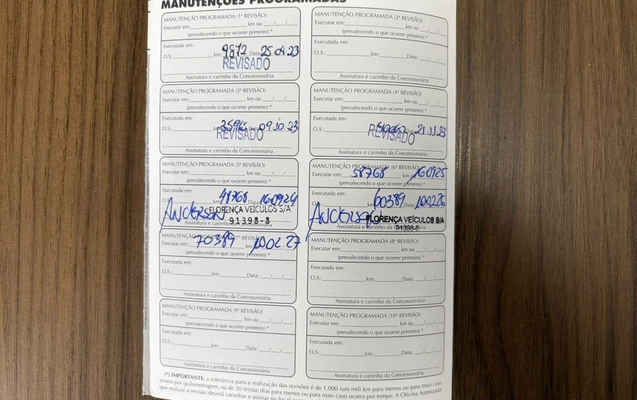 MANUTENÇÕES PROGRAMADAS
MANUTENÇÃO PROGRAMADA (1ª REVISÃO)
Executar em: km ou / /
(prevalecendo o que ocorrer primeiro) *
Executada em:
O.S.: 9872 km Data: 25 04 23
REVISADO
Assinatura e carimbo da Concessionária
MANUTENÇÃO PROGRAMADA (2ª REVISÃO)
Executar em: km ou / /
(prevalecendo o que ocorrer primeiro) *
Executada em:
O.S.: km: Data: / /
Assinatura e carimbo da Concessionária
MANUTENÇÃO PROGRAMADA (3ª REVISÃO)
Executar em: km ou / /
(prevalecendo o que ocorrer primeiro) *
Executada em:
O.S.: 09 10 23
REVISADO
Assinatura e carimbo da Concessionária
MANUTENÇÃO PROGRAMADA (4ª REVISÃO)
Executar em: km ou / /
(prevalecendo o que ocorrer primeiro) *
Executada em:
O.S.: 21 11 23
REVISADO
Assinatura e carimbo da Concessionária
MANUTENÇÃO PROGRAMADA (5ª REVISÃO)
Executar em: km ou / /
(prevalecendo o que ocorrer primeiro) *
Executada em:
O.S.: 48768 160924
Anderson FLORENÇA VEÍCULOS S/A
91398-8
MANUTENÇÃO PROGRAMADA (6ª REVISÃO)
Executar em: 58768 160925
(prevalecendo o que ocorrer primeiro) *
Executada em:
O.S.: 60389 100226
Anderson FLORENÇA VEÍCULOS S/A
91398-8
MANUTENÇÃO PROGRAMADA
Executar em: 70389 100227
(prevalecendo o que ocorrer primeiro) *
Executada em:
O.S.: km: Data: / /
Assinatura e carimbo da Concessionária
MANUTENÇÃO PROGRAMADA (8ª REVISÃO)
Executar em: km ou / /
(prevalecendo o que ocorrer primeiro) *
Executada em:
O.S.: km: Data: / /
Assinatura e carimbo da Concessionária
MANUTENÇÃO PROGRAMADA (9ª REVISÃO)
Executar em: km ou / /
(prevalecendo o que ocorrer primeiro) *
Executada em:
O.S.: km: Data: / /
Assinatura e carimbo da Concessionária
MANUTENÇÃO PROGRAMADA (10ª REVISÃO)
Executar em: km ou / /
(prevalecendo o que ocorrer primeiro) *
Executada em:
O.S.: km: Data: / /
Assinatura e carimbo da Concessionária
(*) IMPORTANTE: a tolerância para a realização das revisões é de 1.000 (um mil) km para menos ou para mais caso
ocorra por quilometragem, ou de 30 (trinta) dias para menos ou para mais caso ocorra por tempo. A Oficina Autorizada
que realizar a revisão deverá carimbar e assinar no local